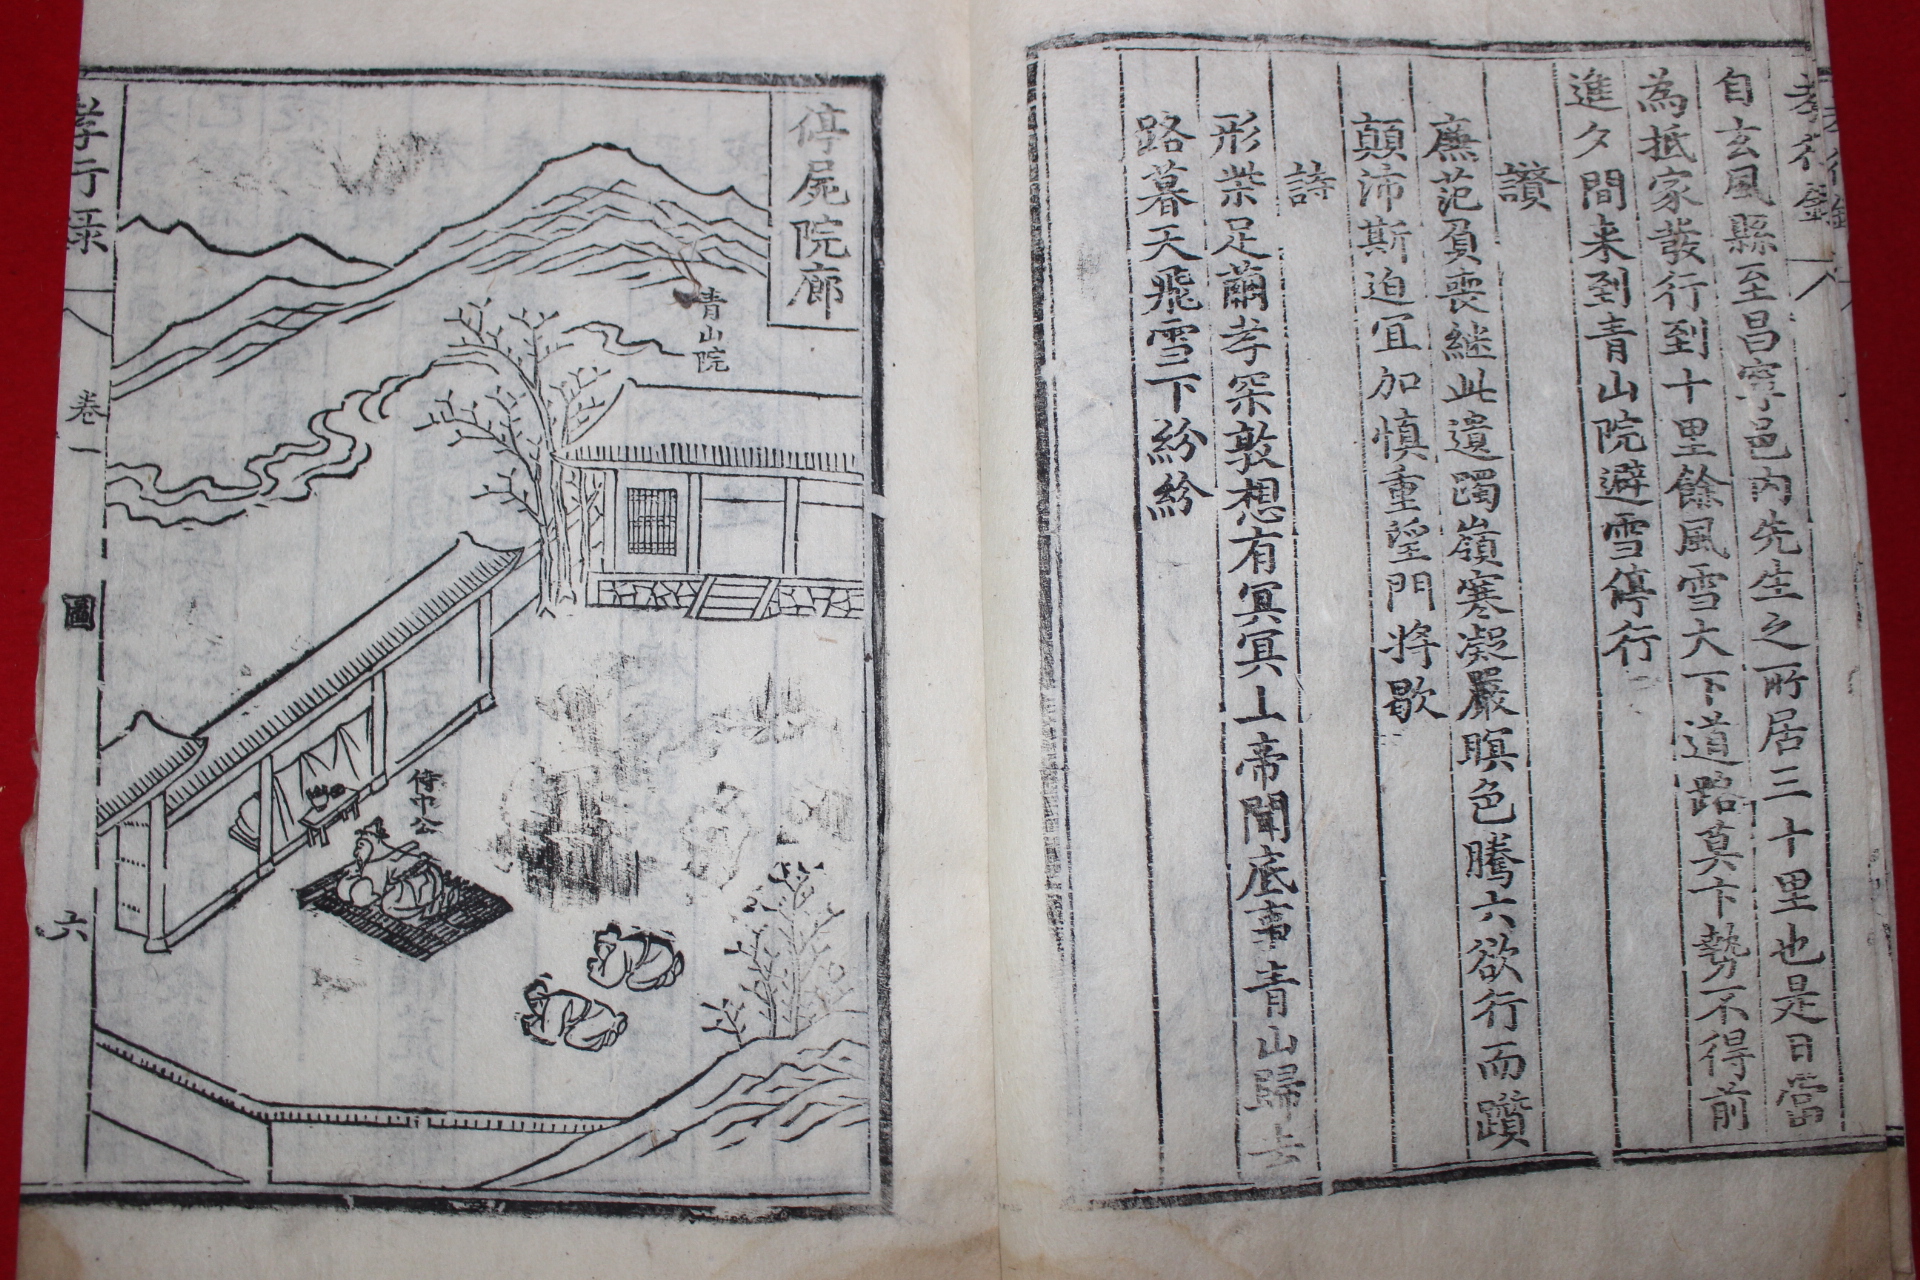 自玄風縣至昌寧邑內先生之所居三十里也是日當
為抵家發行到十里餘風雪大下道路莫卞勢不得前
進夕間来到青山院避雪停行
讚
廡范負喪継此遺躅嶺寒凝嚴暝色騰六欲行而躓
顛沛斯迫宜加慎重望門將歇
詩
形柴足繭孝罙敦想有冥冥上帝聞底事青山歸去
路暮天飛雪下紛紛
停屍院廊
青山院
侍中公
孝行录
卷一
圖
六